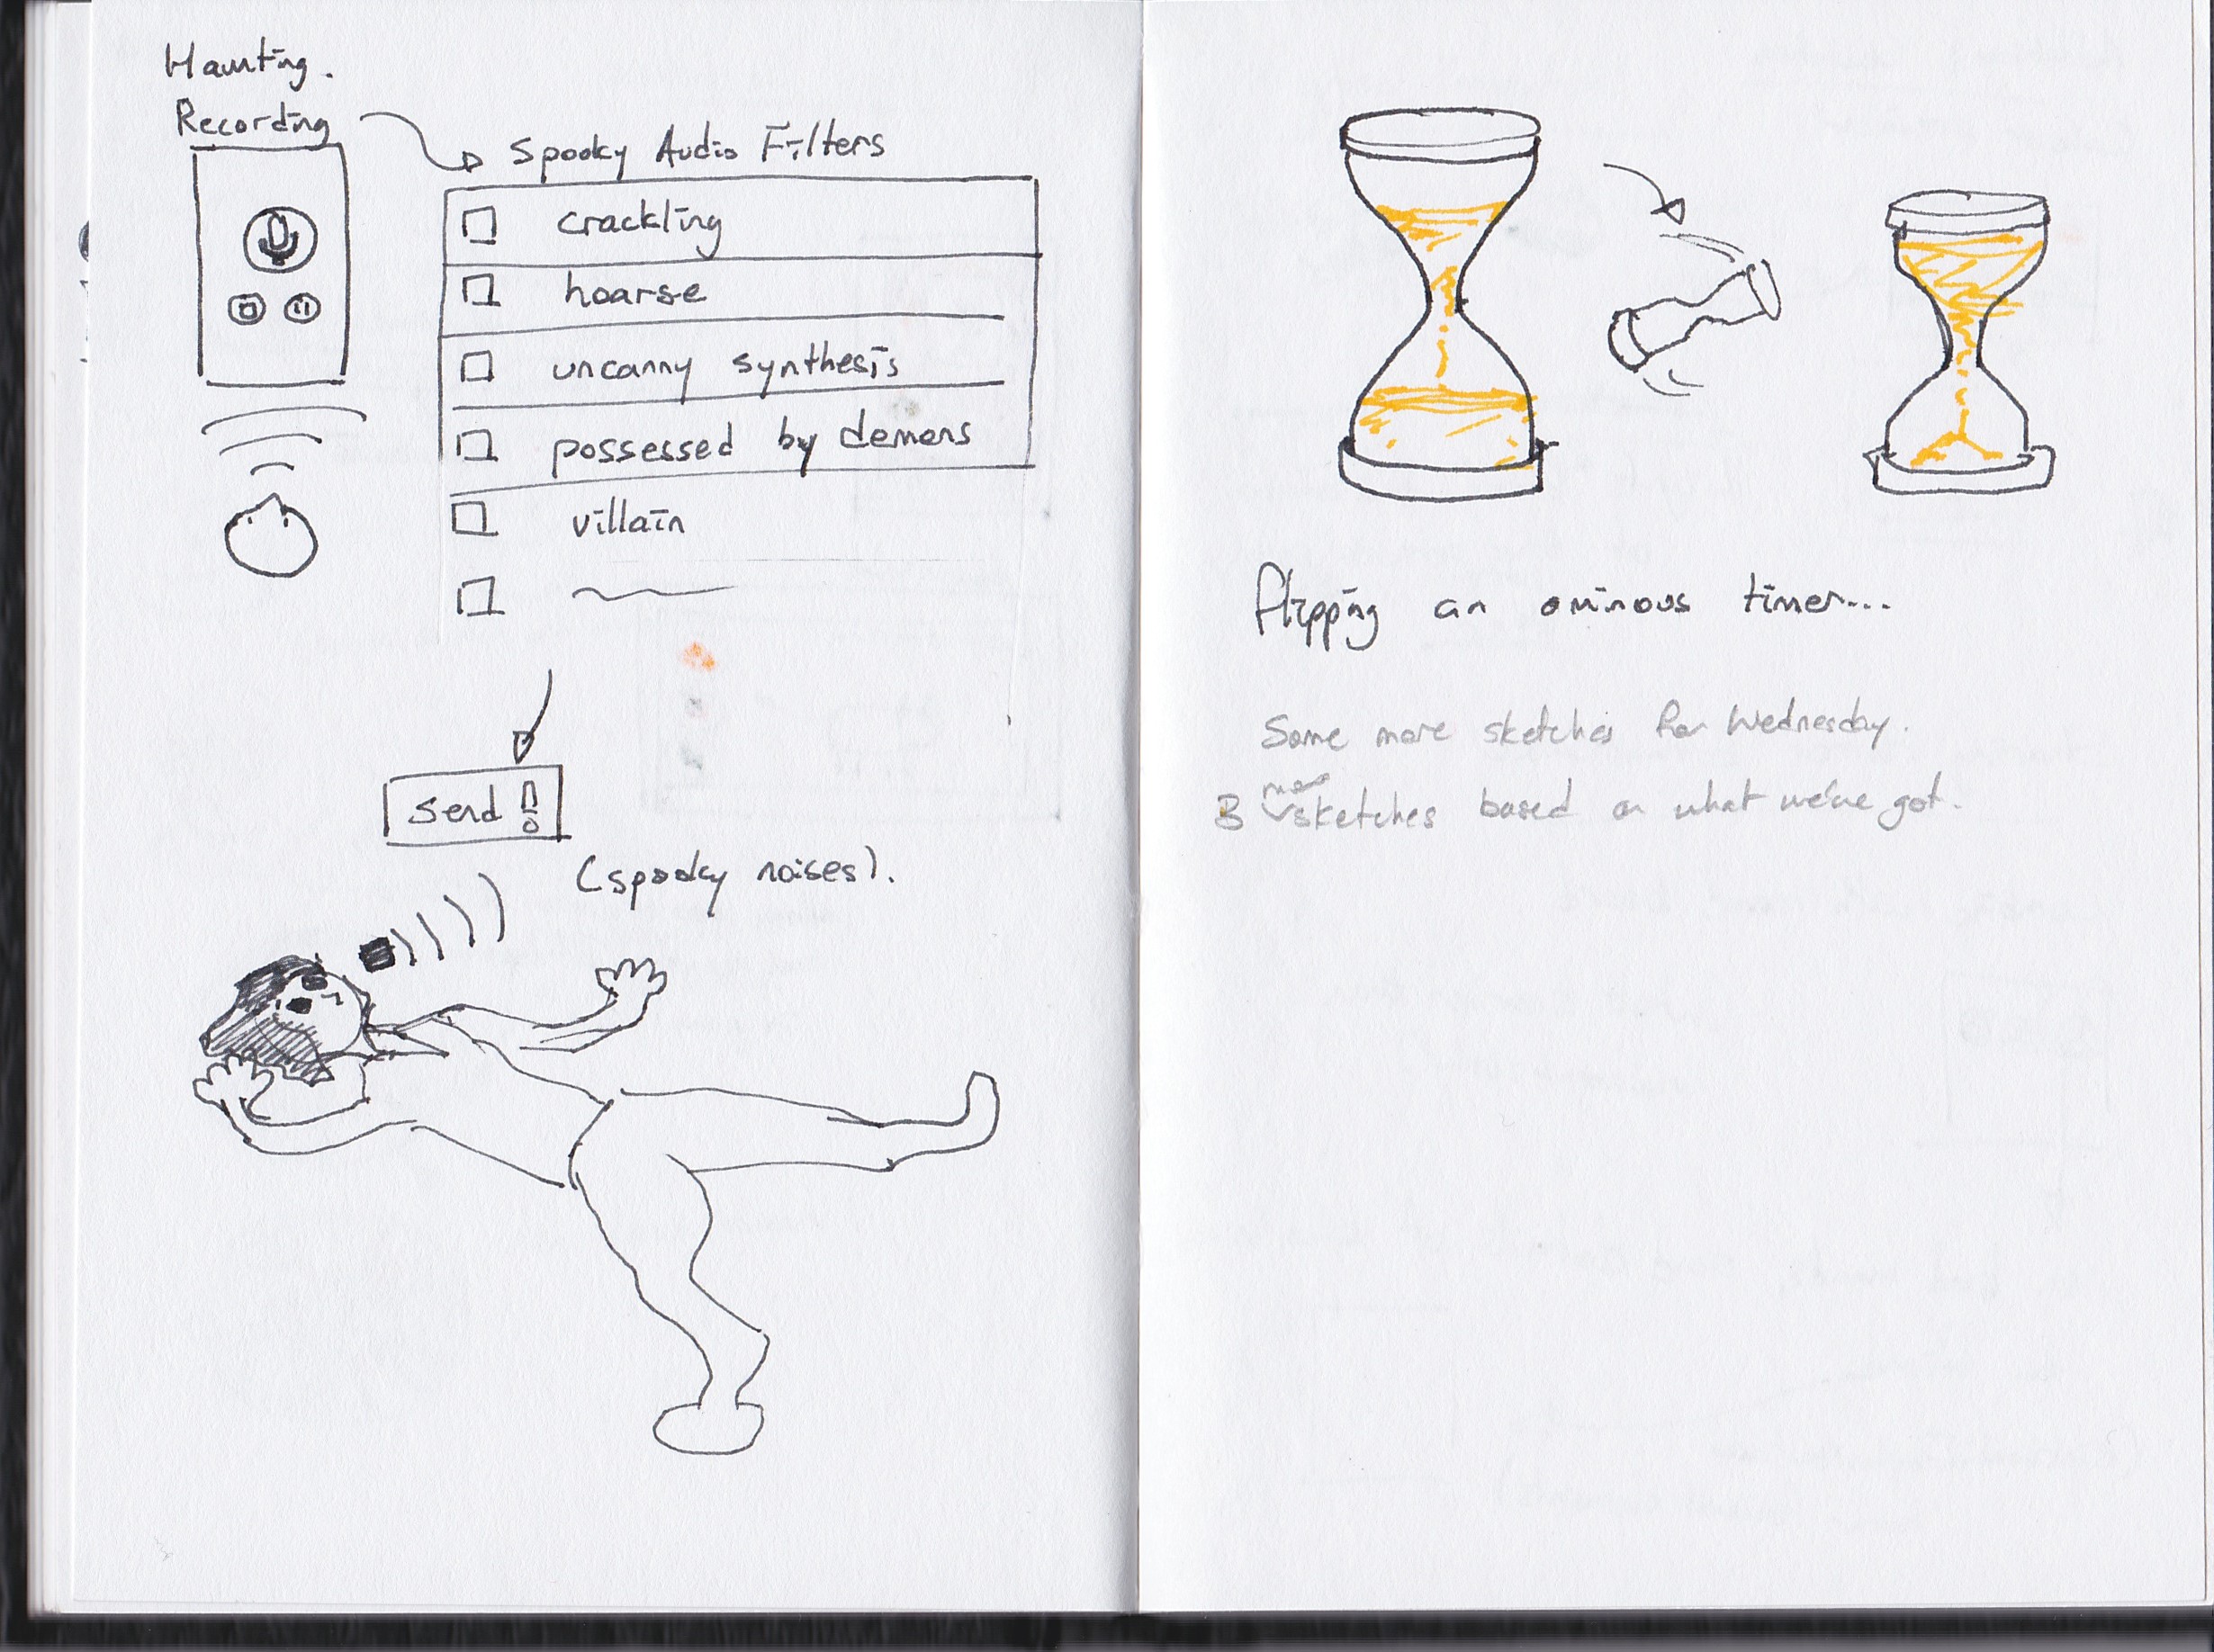 Haunting.
Recording
Spooky Audio Filters
crackling
hoarse
uncanny synthesis
possessed by demons
villain
Send !
(spooky noises).
flipping an ominous timer...
Some more sketches for Wednesday.
3 more sketches based on what we've got.